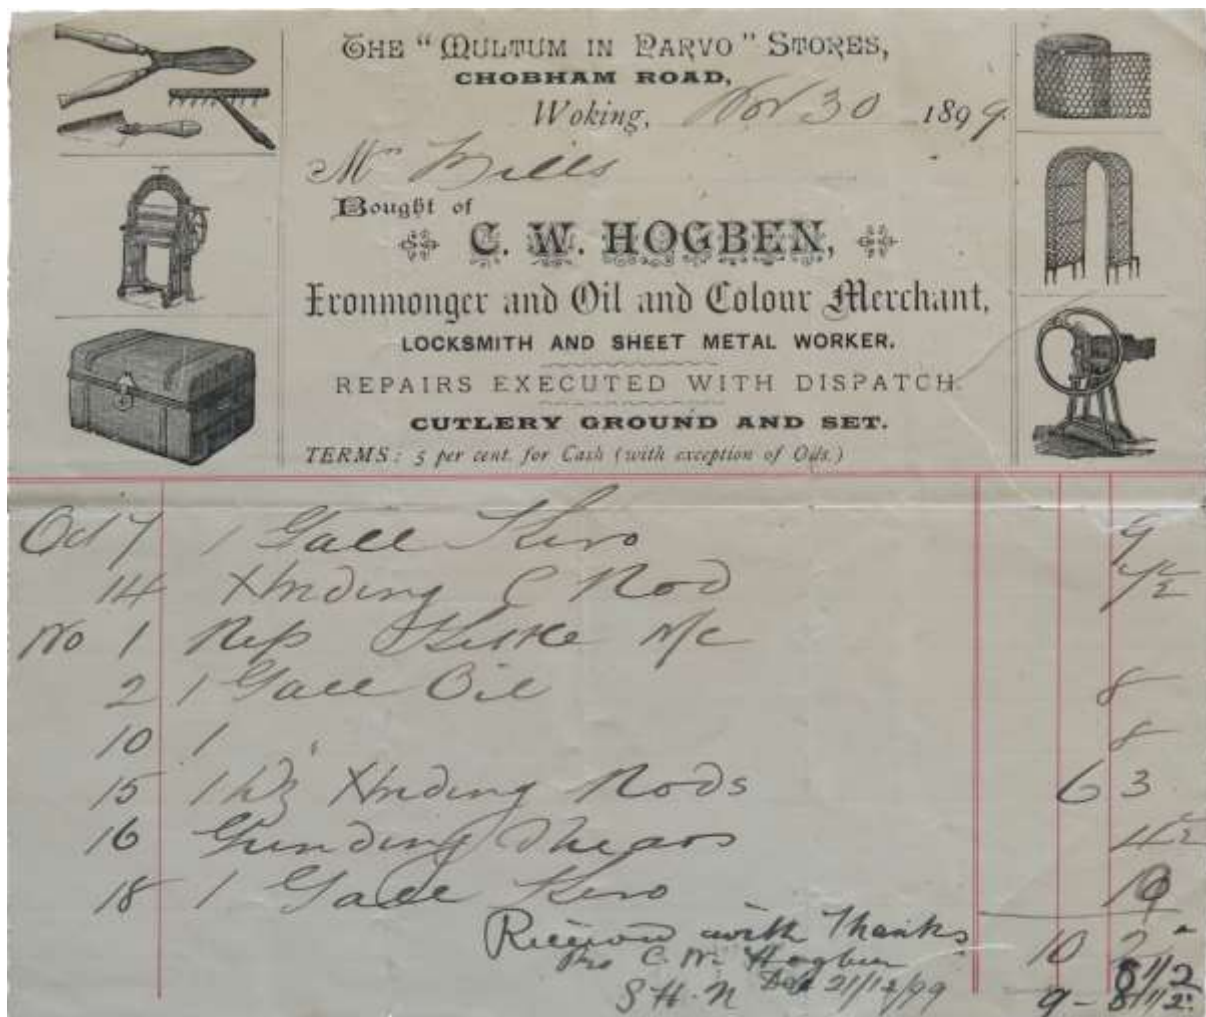 The "Multum in Parvo" Stores,
CHOBHAM ROAD,
Woking, Nov 30 1899.
Mr Mills
Bought of
C. W. HOGBEN,
Ironmonger and Oil and Colour Merchant,
LOCKSMITH AND SHEET METAL WORKER.
REPAIRS EXECUTED WITH DISPATCH.
CUTLERY GROUND AND SET.
TERMS: 5 per cent. for Cash (with exception of Oils.)
Oct 7 1 Gall Kero 9
14 Rod
No 1 Rep M/c
2 1 Gall Oil 8
10 1 " 8
15 1 Dz Rods 6 3
16 Grinding Shears
18 1 Gall Kero
Received with Thanks 10 2
pro C. W. Hogben 5 1/2
S H. N Dec 21/12/99 9 - 8 1/2